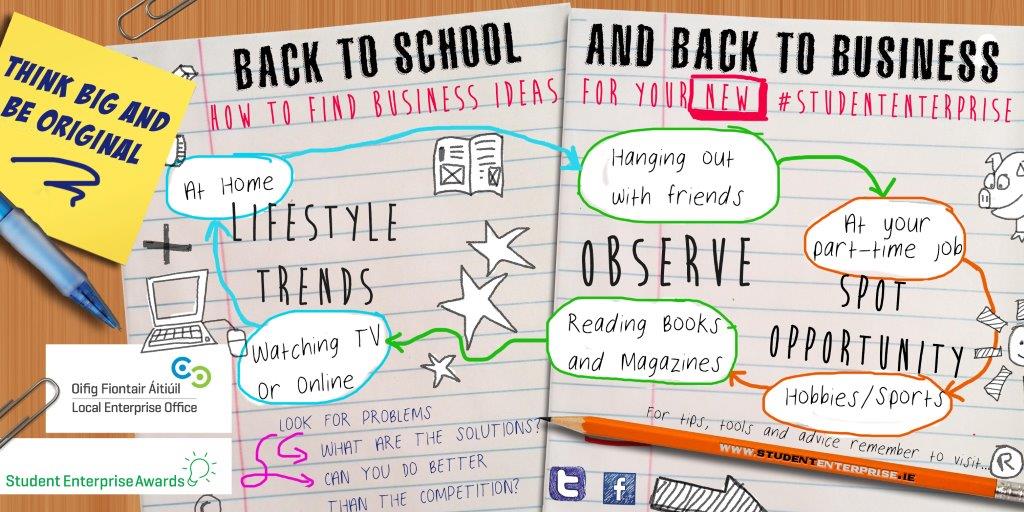 THINK BIG AND
BE ORIGINAL
BACK TO SCHOOL
HOW TO FIND BUSINESS IDEAS
AND BACK TO BUSINESS
FOR YOUR NEW #STUDENTENTERPRISE
At Home
LIFESTYLE
TRENDS
Watching TV
or Online
Hanging out
with friends
At your
part-time job
OBSERVE
SPOT
OPPORTUNITY
Reading Books
and Magazines
Hobbies/Sports
LOOK FOR PROBLEMS
WHAT ARE THE SOLUTIONS?
CAN YOU DO BETTER
THAN THE COMPETITION?
For tips, tools and advice remember to visit...
WWW.STUDENTENTERPRISE.IE
Oifig Fiontair Áitiúil
Local Enterprise Office
Student Enterprise Awards
t
f
R